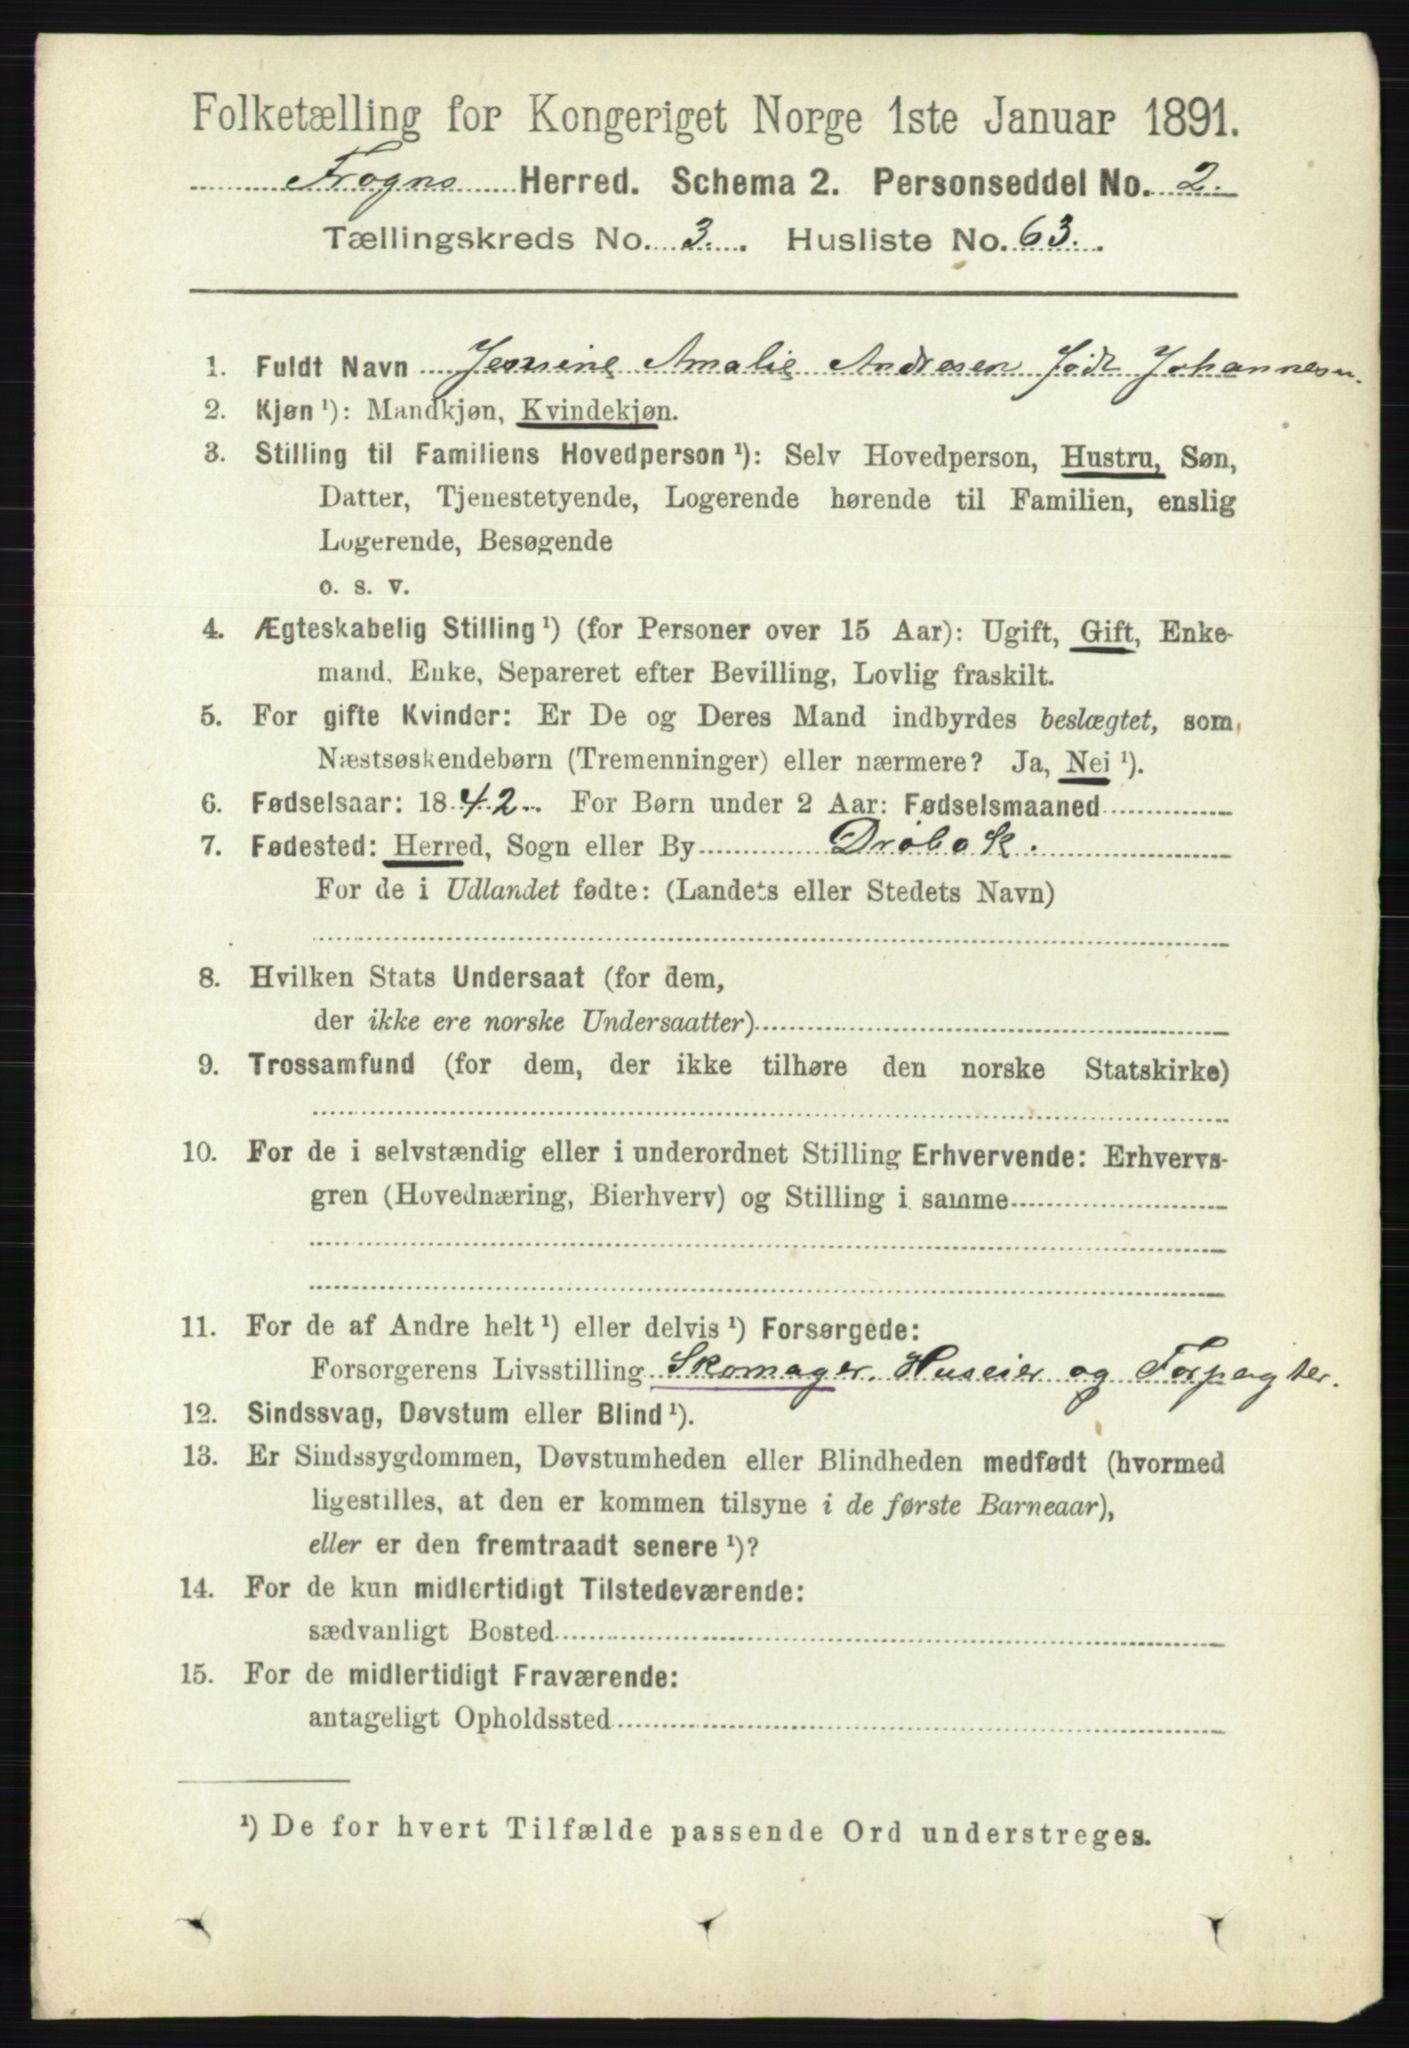 Folketælling for Kongeriget Norge 1ste Januar 1891.
Frogns Herred. Schema 2. Personseddel No. 2.
Tællingskreds No. 3. Husliste No. 63.
1. Fuldt Navn Jensine Amalie Andresen født Johannesen.
2. Kjøn ¹): Mandkjøn, Kvindekjøn.
3. Stilling til Familiens Hovedperson ¹): Selv Hovedperson, Hustru, Søn,
Datter, Tjenestetyende, Logerende hørende til Familien, enslig
Logerende, Besøgende
o. s. v.
4. Ægteskabelig Stilling ¹) (for Personer over 15 Aar): Ugift, Gift, Enke-
mand, Enke, Separeret efter Bevilling, Lovlig fraskilt.
5. For gifte Kvinder: Er De og Deres Mand indbyrdes beslægtet, som
Næstsøskendebørn (Tremenninger) eller nærmere? Ja, Nei ¹).
6. Fødselsaar: 1842. For Børn under 2 Aar: Fødselsmaaned
7. Fødested: Herred, Sogn eller By Drøbak.
For de i Udlandet fødte: (Landets eller Stedets Navn)
8. Hvilken Stats Undersaat (for dem,
der ikke ere norske Undersaatter)
9. Trossamfund (for dem, der ikke tilhøre den norske Statskirke)
10. For de i selvstændig eller i underordnet Stilling Erhvervende: Erhvervs-
gren (Hovednæring, Bierhverv) og Stilling i samme
11. For de af Andre helt ¹) eller delvis ¹) Forsørgede:
Forsørgerens Livsstilling Skomager. Huseier og Forpagter.
12. Sindssvag, Døvstum eller Blind ¹).
13. Er Sindssygdommen, Døvstumheden eller Blindheden medfødt (hvormed
ligestilles, at den er kommen tilsyne i de første Barneaar),
eller er den fremtraadt senere ¹)?
14. For de kun midlertidigt Tilstedeværende:
sædvanligt Bosted
15. For de midlertidigt Fraværende:
antageligt Opholdssted
¹) De for hvert Tilfælde passende Ord understreges.